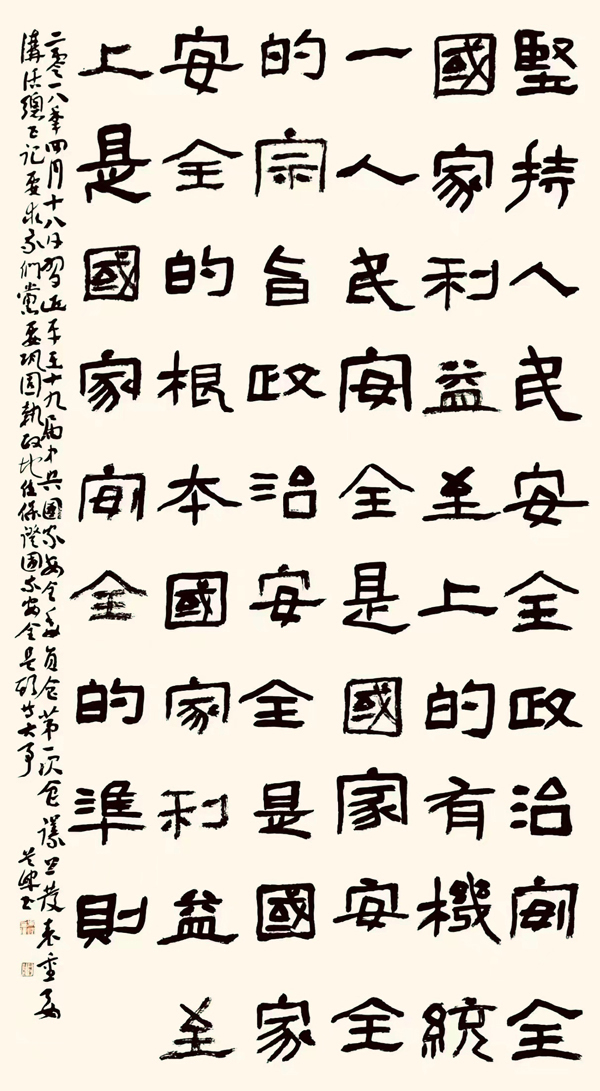 堅持人民安全政治安全
國家利益至上的有機統
一人民安全是國家安全
的宗旨政治安全是國家
安全的根本國家利益至
上是國家安全的準則
二零一八年四月十八日習近平在十九屆中共國家安全委員會第一次會議上發表重要
講話總書記要求我們黨要鞏固執政地位保證國家安全是頭等大事